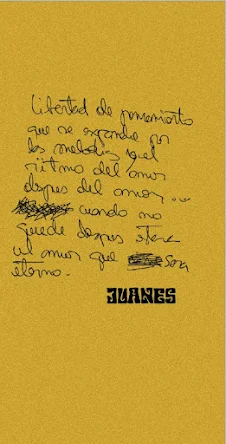 Libertad de pensamiento
que se expande por
las melodias y el
ritmo del amor
despues del amor...
cuando no
quede despues
un amor que sera
eterno.
JUANES